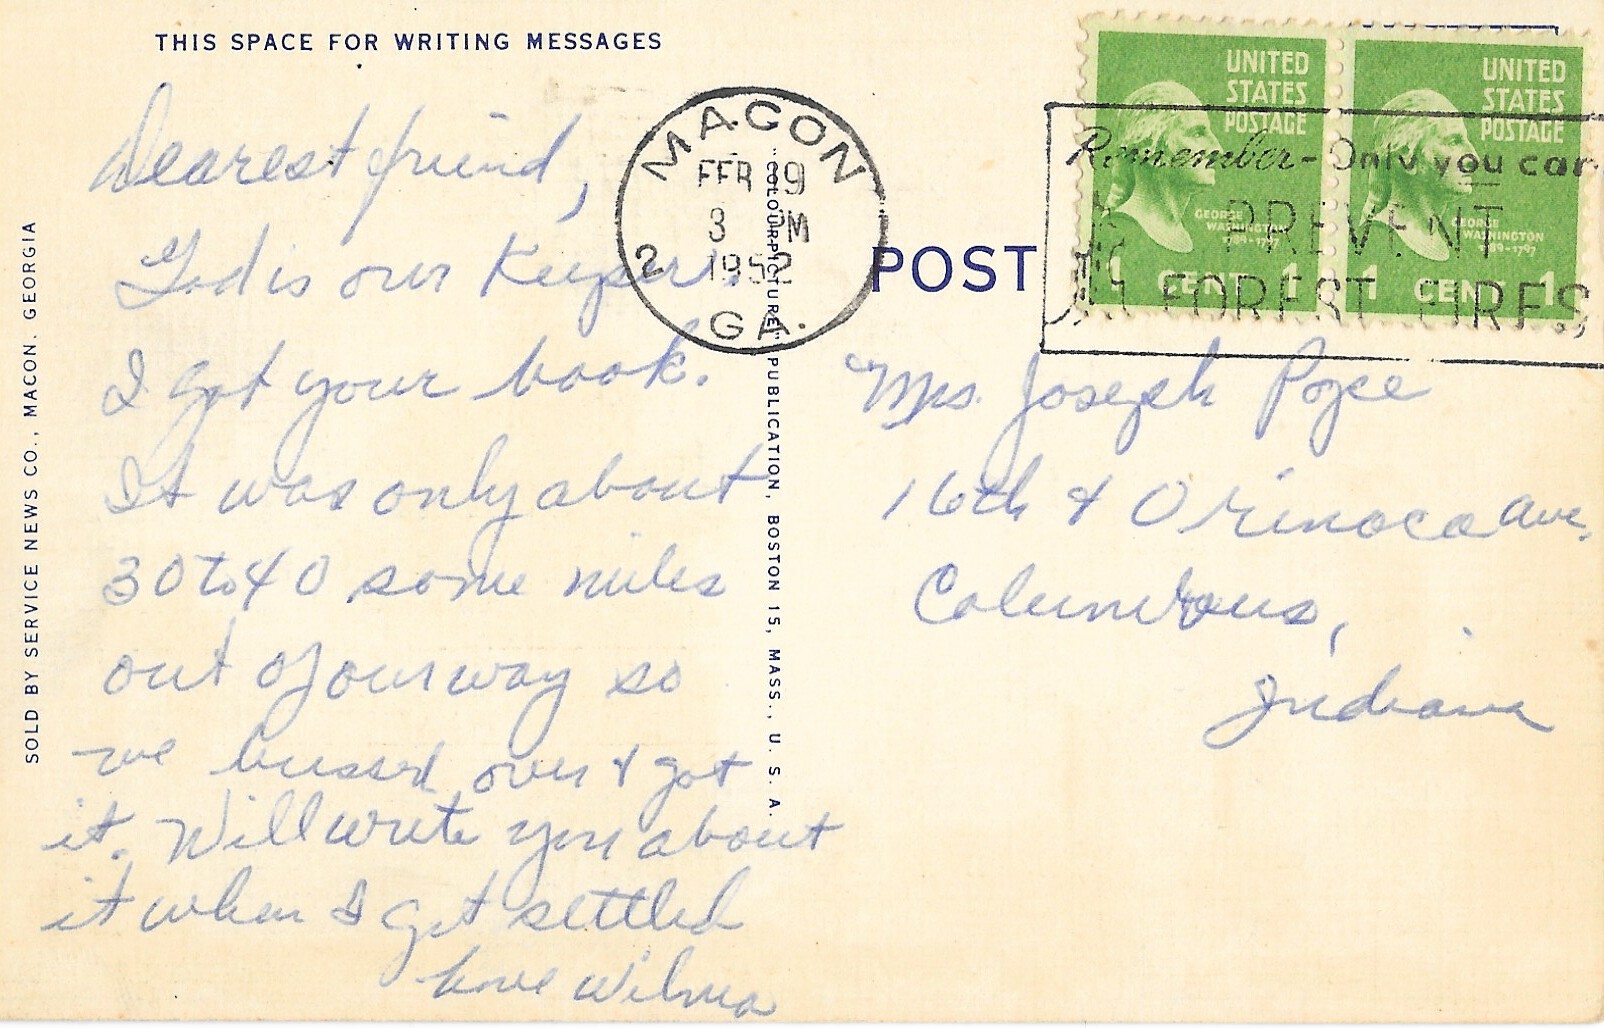 THIS SPACE FOR WRITING MESSAGES
Dearest friend,
God is our Keeper.
I got your book.
It was only about
30 to 40 some miles
out of our way so
we bussed over & got
it. Will write you about
it when I get settled
Love Wilma
SOLD BY SERVICE NEWS CO., MACON, GEORGIA
"COLOURPICTURE" PUBLICATION, BOSTON 15, MASS., U. S. A.
MACON
FEB 9
3 PM
1952
2
GA.
POST
UNITED
STATES
POSTAGE
GEORGE
WASHINGTON
1789-1797
1 CENT 1
UNITED
STATES
POSTAGE
GEORGE
WASHINGTON
1789-1797
1 CENT 1
Remember - Only you can
PREVENT
FOREST FIRES
Mrs. Joseph
16th & Orinoco Ave.
Columbus,
Indiana